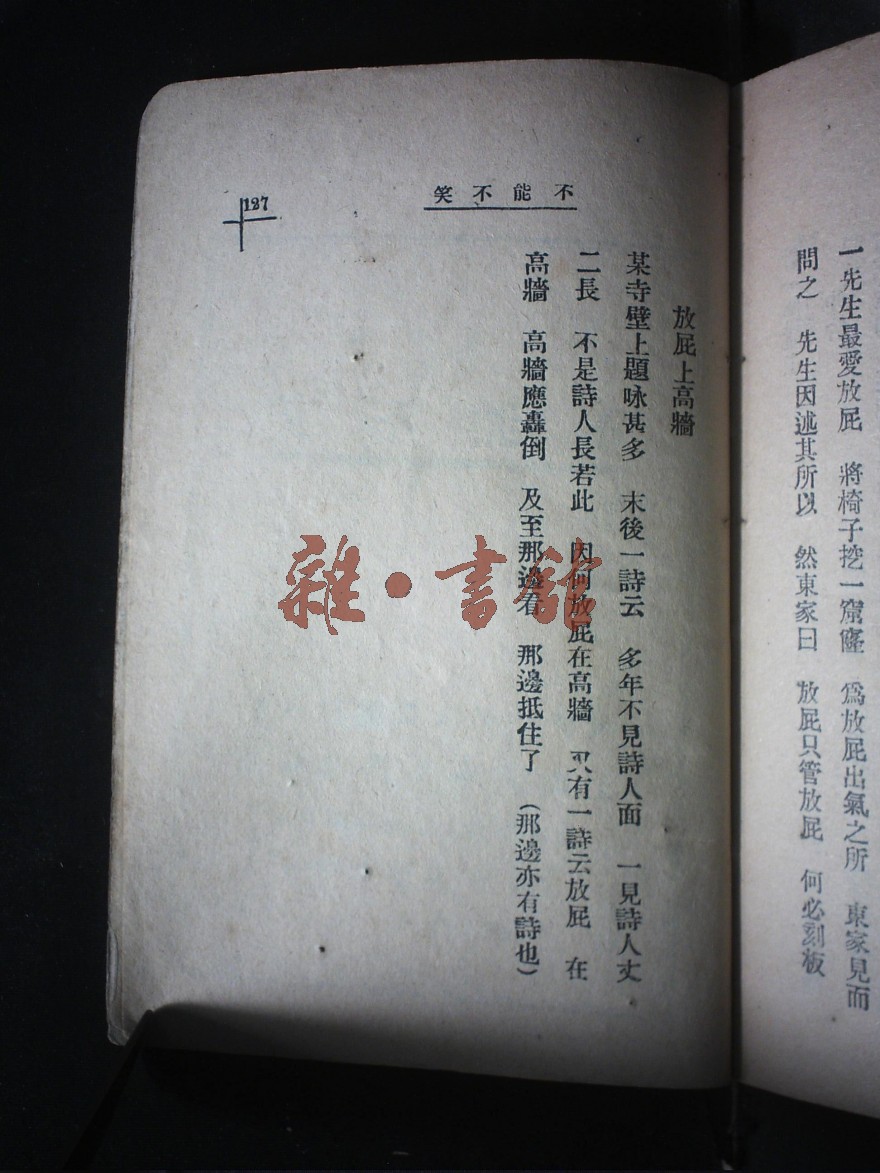 一先生最愛放屁　將椅子挖一窟窿　爲放屁出氣之所　東家見而
問之　先生因述其所以　然東家曰　放屁只管放屁　何必刻板
不能不笑
127
放屁上高牆
某寺壁上題咏甚多　末後一詩云　多年不見詩人面　一見詩人丈
二長　不是詩人長若此　因何放屁在高牆　又有一詩云放屁　在
高牆　高牆應轟倒　及至那邊看　那邊抵住了　(那邊亦有詩也)
雜·書館